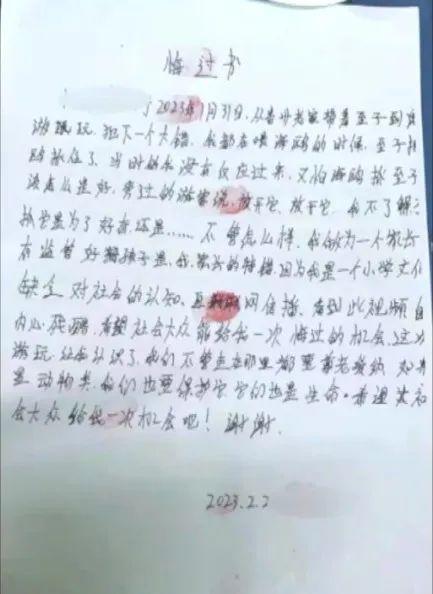 悔过书
于2023年1月31日,从老家带着至子到
游玩,犯下一个大错,我都在喂海鸥的时候,至子把
鸥抓住了,当时的我没有反应过来,又怕海鸥抓至子
该怎么是好,旁边的游客说,放开它,放开它,我不了解
抓它是为了好奇还是……不管怎么样,我做为一个家长
有监督好孩子是我家长的特错,因为我是一个小学文化
缺乏对社会的认知,网传播,看到此视频自
内心,希望社会大众能给我一次悔过的机会,这次
游玩,认识了,我们不管走在那里都要尊老爱幼,如
是动物类,我们也要保护它,它们也是生命。希望
会大众给我一次机会吧!谢谢.
2023.2.2